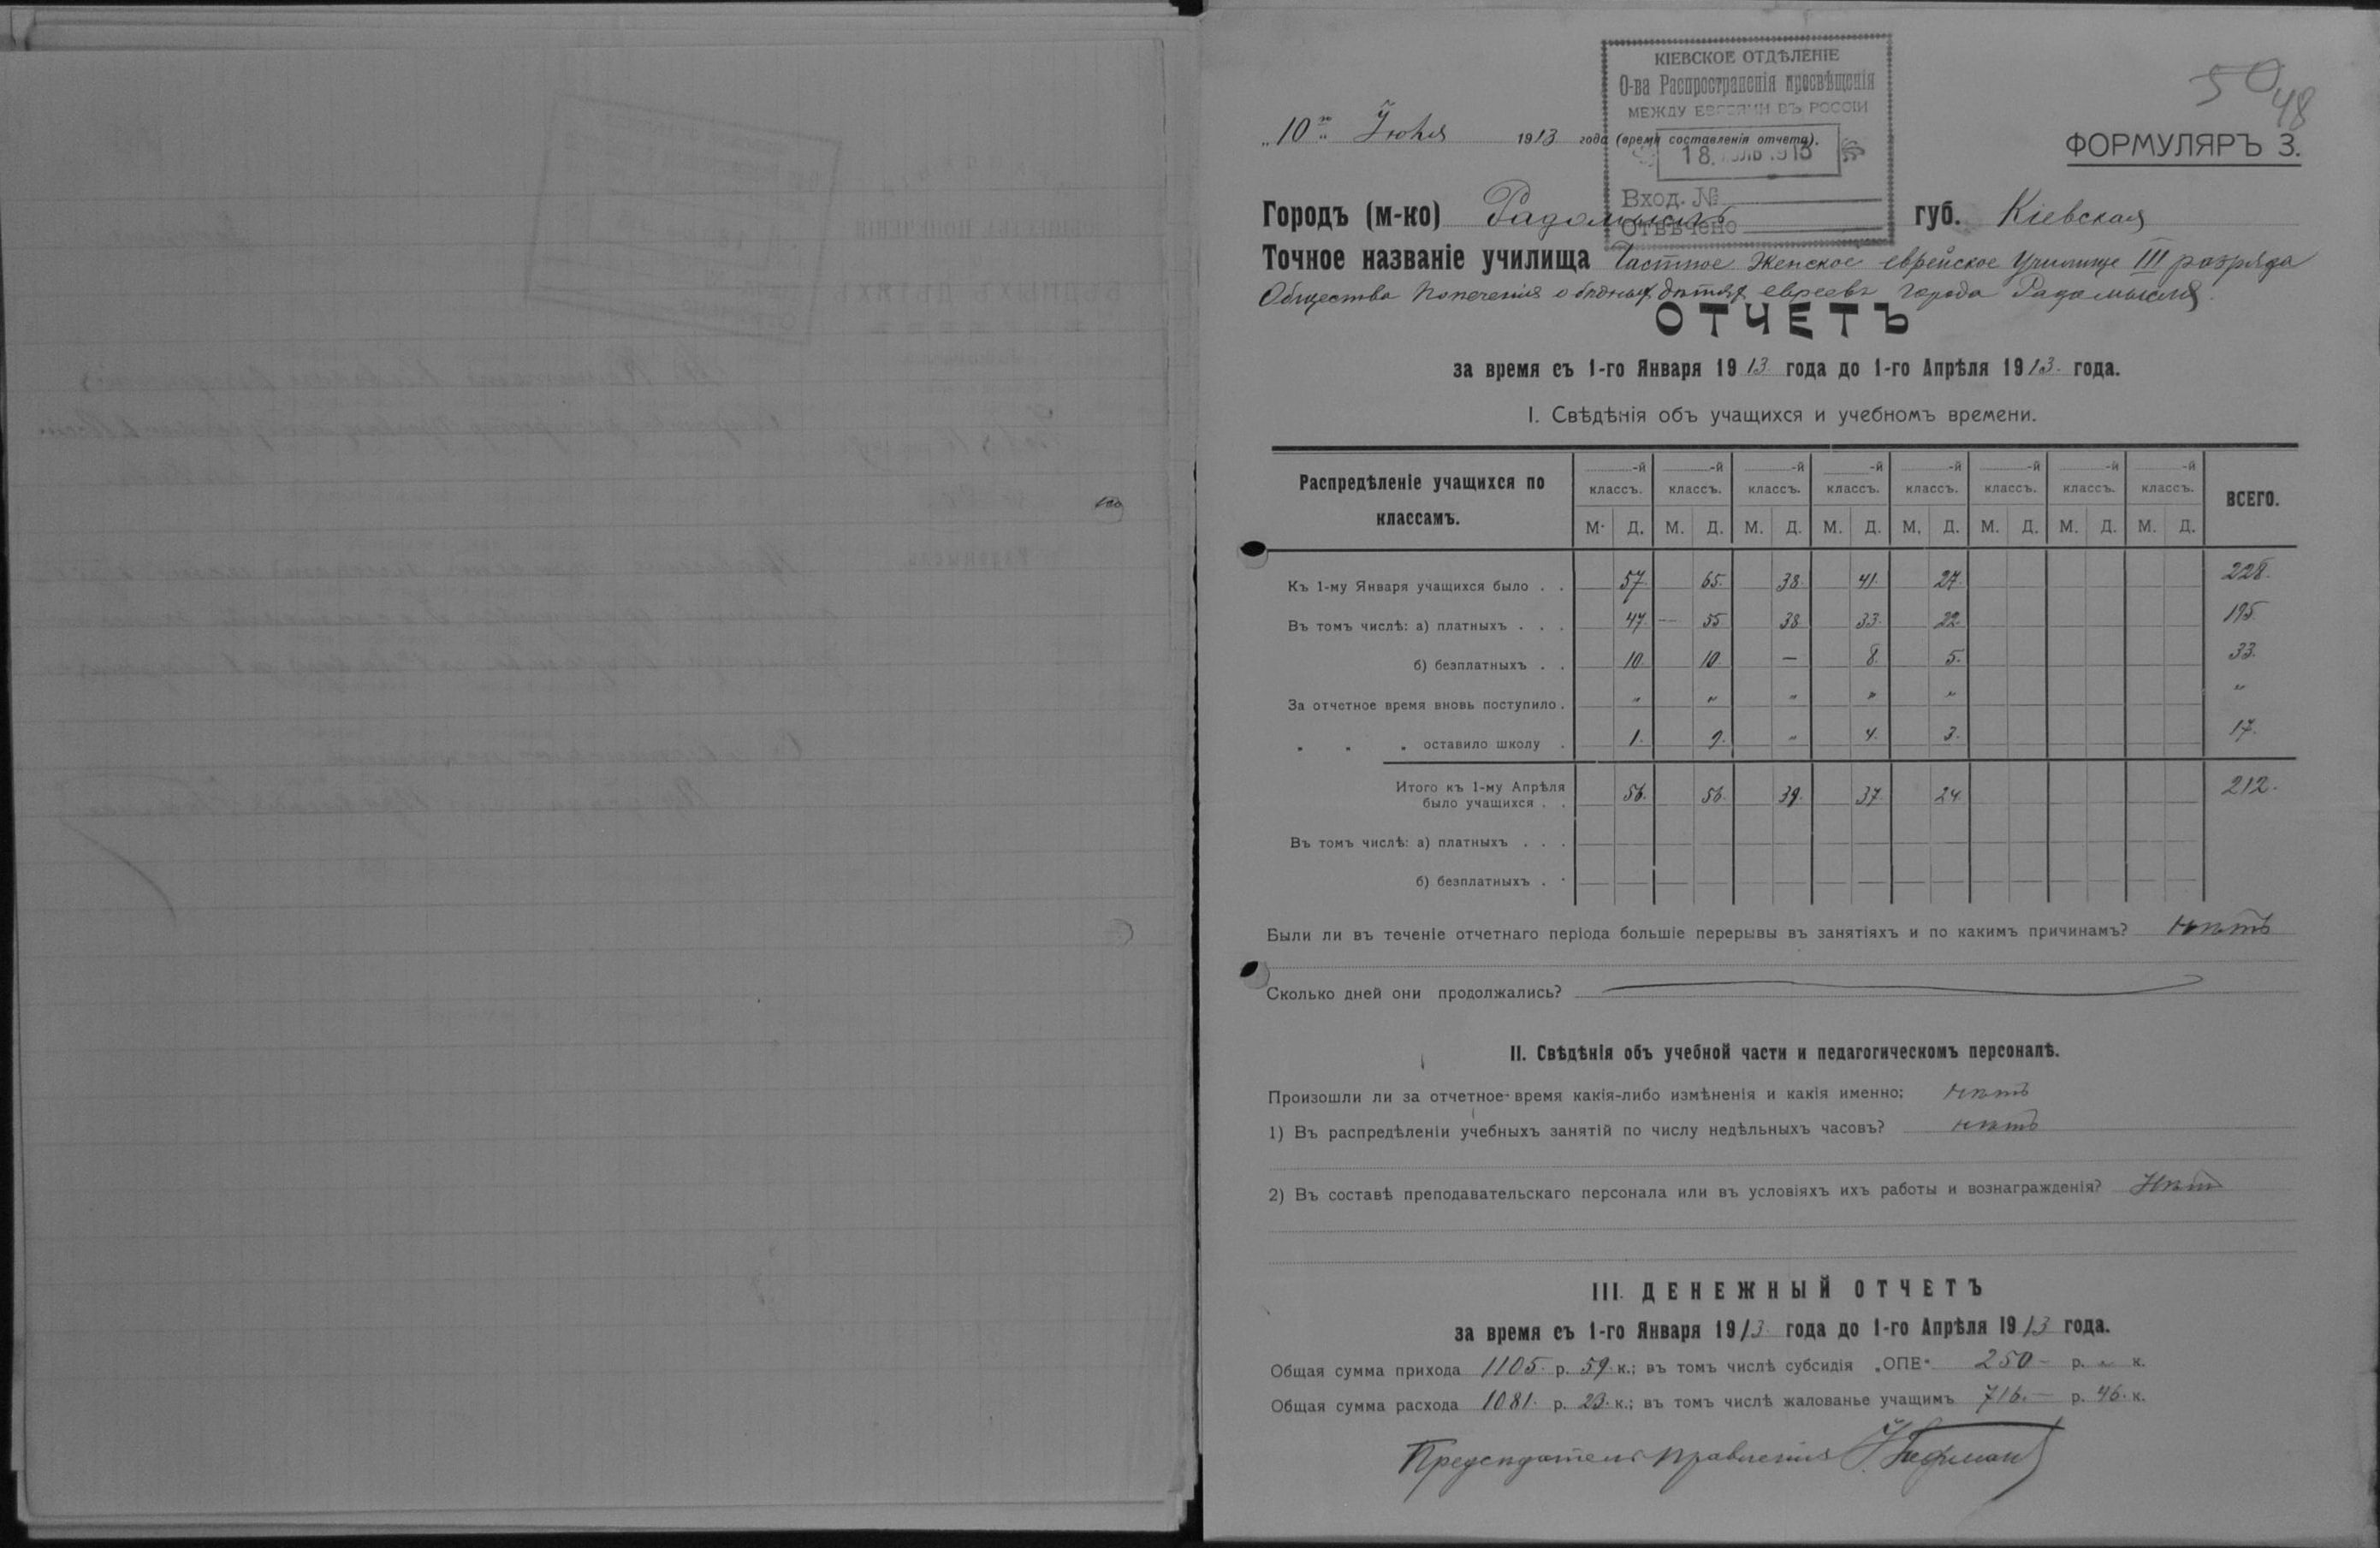 50
48
КІЕВСКОЕ ОТДѢЛЕНІЕ
О-ва Распространенія просвѣщенія
МЕЖДУ ЕВРЕЯМИ ВЪ РОССІИ
„10го“ Іюля 1913 года (время составленія отчета).
18 ІЮЛЬ 1913
ФОРМУЛЯРЪ 3.
Вход. №
Отвѣчено
Городъ (м-ко) Радомысль губ. Кіевская
Точное названіе училища Частное Женское еврейское Училище III разряда
Общества Попеченія о бѣдныхъ дѣтяхъ евреевъ города Радомысля.
ОТЧЕТЪ
за время съ 1-го Января 1913 года до 1-го Апрѣля 1913. года.
I. Свѣдѣнія объ учащихся и учебномъ времени.
Распредѣленіе учащихся по классамъ. -й классъ. -й классъ. -й классъ. -й классъ. -й классъ. -й классъ. -й классъ. -й классъ. ВСЕГО.
М. Д. М. Д. М. Д. М. Д. М. Д. М. Д. М. Д. М. Д.
Къ 1-му Января учащихся было . . 57. 65. 38. 41. 27. 228.
Въ томъ числѣ: а) платныхъ . . . 47. — 55 38 33. 22. 195
б) безплатныхъ . . 10. 10. — 8. 5. 33.
За отчетное время вновь поступило . „ „ „ „ „ „
„ „ „ оставило школу . 1. 9. „ 4. 3. 17.
Итого къ 1-му Апрѣля
было учащихся . . 56. 56. 39. 37. 24. 212.
Въ томъ числѣ: а) платныхъ . . .
б) безплатныхъ . .
Были ли въ теченіе отчетнаго періода большіе перерывы въ занятіяхъ и по какимъ причинамъ? нѣтъ
Сколько дней они продолжались?
II. Свѣдѣнія объ учебной части и педагогическомъ персоналѣ.
Произошли ли за отчетное время какія-либо измѣненія и какія именно: нѣтъ
1) Въ распредѣленіи учебныхъ занятій по числу недѣльныхъ часовъ? нѣтъ
2) Въ составѣ преподавательскаго персонала или въ условіяхъ ихъ работы и вознагражденія? Нѣтъ
III. ДЕНЕЖНЫЙ ОТЧЕТЪ
за время съ 1-го Января 1913 года до 1-го Апрѣля 1913 года.
Общая сумма прихода 1105. р. 59. к.; въ томъ числѣ субсидія „ОПЕ“ 250 — р. „ к.
Общая сумма расхода 1081. р. 23. к.; въ томъ числѣ жалованье учащимъ 716. — р. 46. к.
Предсѣдатель правленія